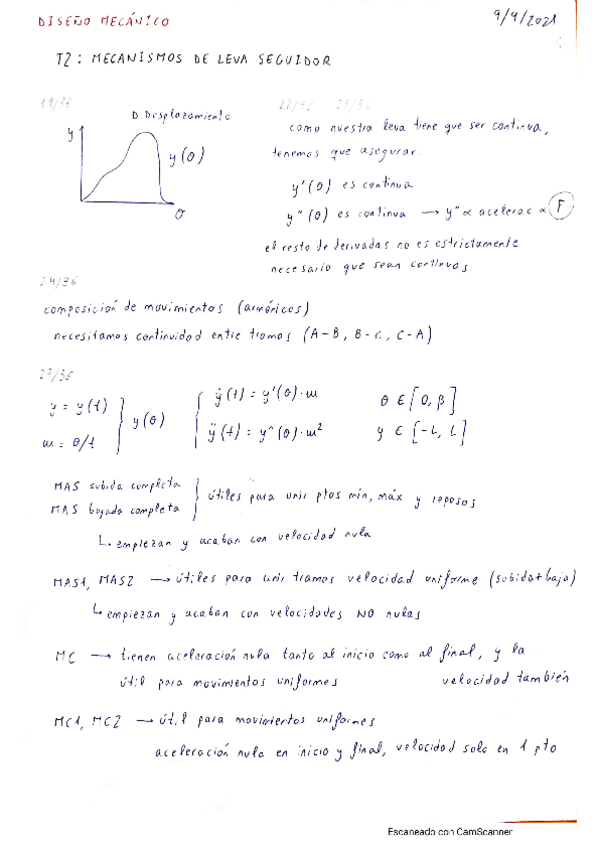 DISEÑO MECÁNICO
9/9/2021
T2: MECANISMOS DE LEVA SEGUIDOR
19/36
D. Desplazamiento
y
y(θ)
θ
22/36 23/36
como nuestra leva tiene que ser continua,
tenemos que asegurar:
y'(θ) es continua
y''(θ) es continua → y'' ∝ acelerac ∝ F
el resto de derivadas no es estrictamente
necesario que sean continuas
24/36
composición de movimientos (armónicos)
necesitamos continuidad entre tramos (A-B, B-C, C-A)
27/36
y = y(t)
ω = θ/t
y(θ)
ẏ(t) = y'(θ)·ω
ÿ(t) = y''(θ)·ω²
θ ∈ [0, β]
y ∈ [-L, L]
MAS subida completa
MAS bajada completa
útiles para unir ptos mín, máx y reposos
↳ empiezan y acaban con velocidad nula
MAS1, MAS2 → útiles para unir tramos velocidad uniforme (subida+baja)
↳ empiezan y acaban con velocidades NO nulas
MC → tienen aceleración nula tanto al inicio como al final, y la
velocidad también
útil para movimientos uniformes
MC1, MC2 → útil para movimientos uniformes
aceleración nula en inicio y final, velocidad solo en 1 pto
Escaneado con CamScanner